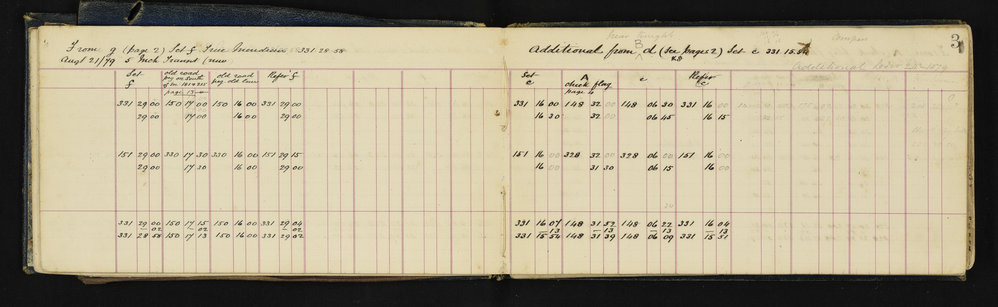 From g (page 2) Set f True Meridian 331 28 58
Augt 21/79 5 Inch Transit (new
Set f old road peg on South old road peg old line Refer f
page 19
331 29 00 150 17 00 150 16 00 331 29 00
29 00 17 00 16 00 29 00
151 29 00 330 17 30 330 16 00 151 29 15
29 00 17 30 16 00 29 00
331 29 00 150 17 15 150 16 00 331 29 04
02 02 02
331 28 58 150 17 13 150 16 00 331 29 02
3
Additional from B d (see page 2) Set c 331 15 54
Additional
Set c A check plug c Refer c
page 4
331 16 00 148 32 00 148 06 30 331 16 00
16 30 32 00 06 45 16 15
151 16 00 328 32 00 328 06 00 151 16 00
16 00 31 30 06 15 16 00
331 16 07 148 31 52 148 06 22 331 16 04
13 13 13 13
331 15 54 148 31 39 148 06 09 331 15 51